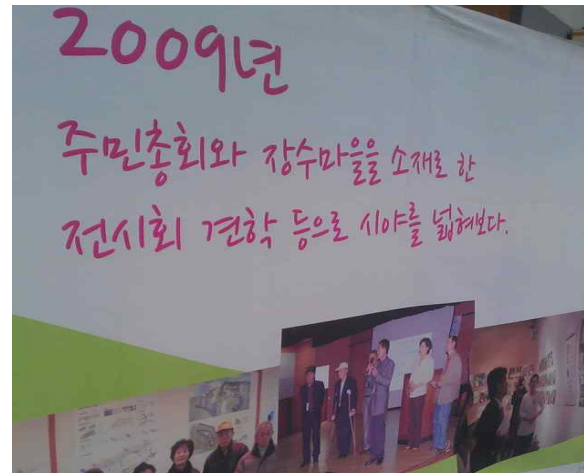 2009년
주민총회와 장수마을을 소재로 한
전시회 견학 등으로 시야를 넓혀보다.